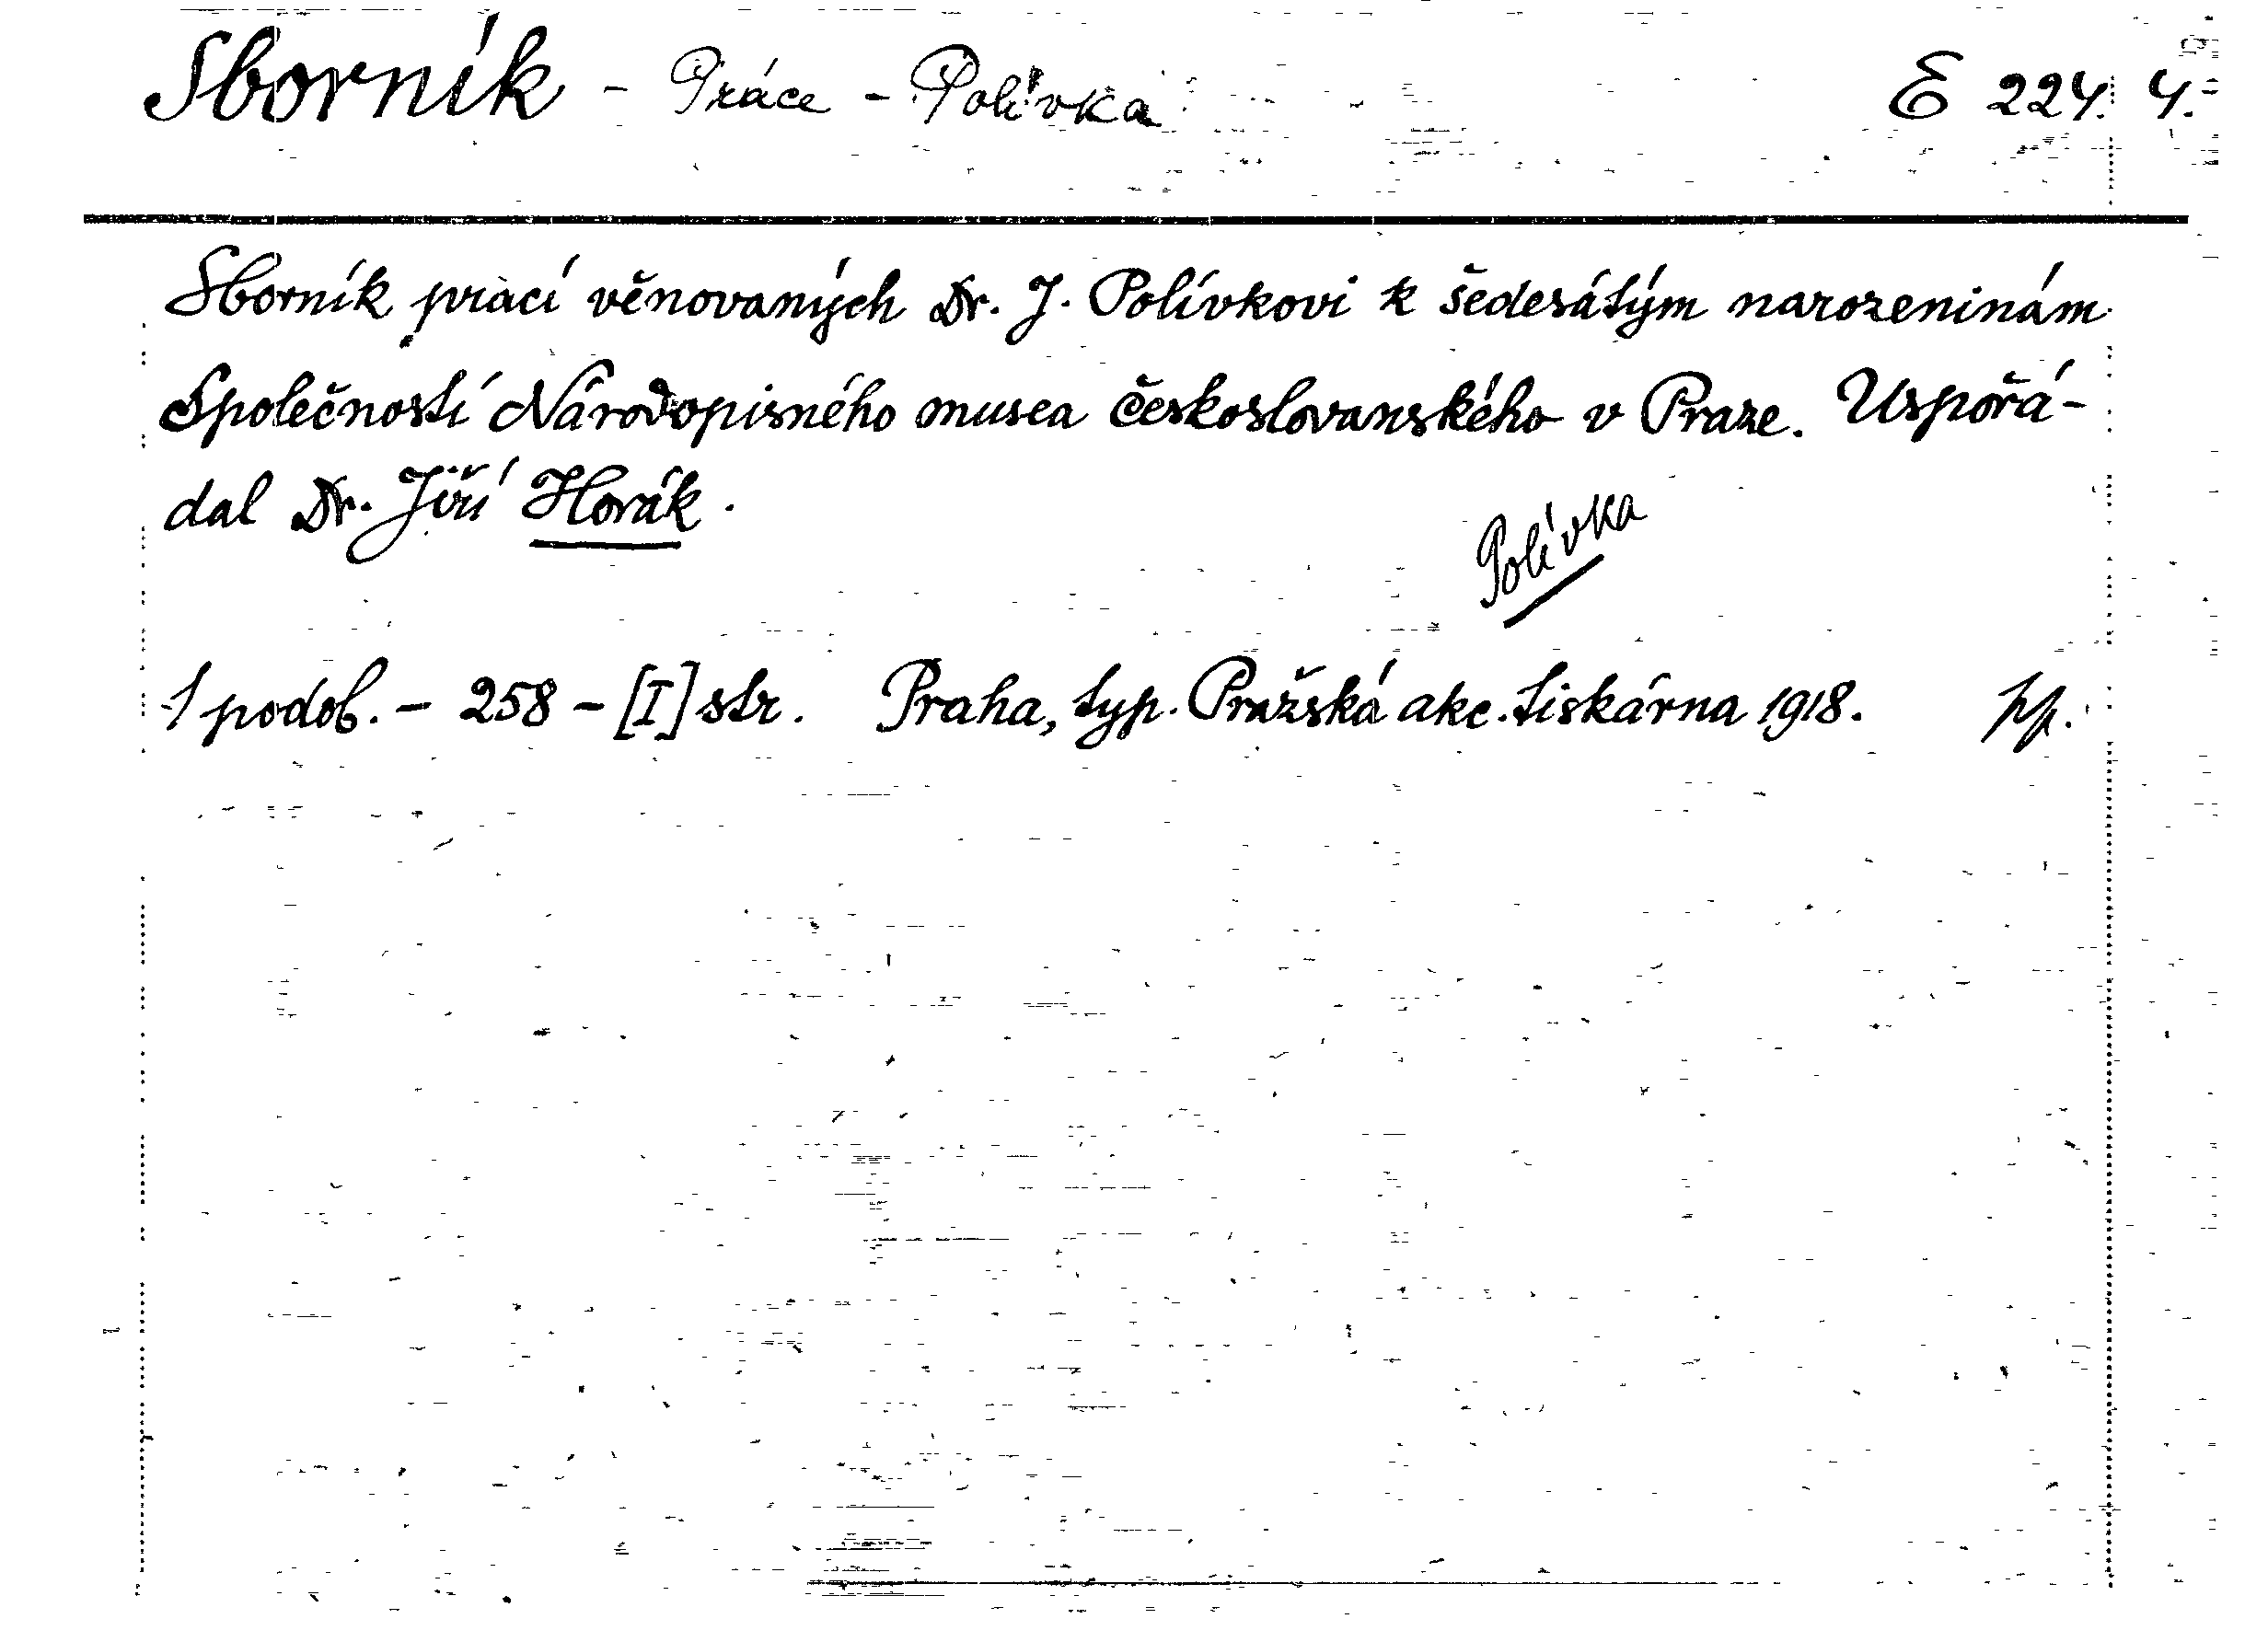 Sborník - Práce - Polívka E 224. 4.
Sborník prací věnovaných Dr. J. Polívkovi k šedesátým narozeninám
Společností Národopisného musea českoslovanského v Praze. Uspořá-
dal Dr. Jiří Horák.
Polívka
1 podob. - 258 - [I] str. Praha, typ. Pražská akc. tiskárna 1918.